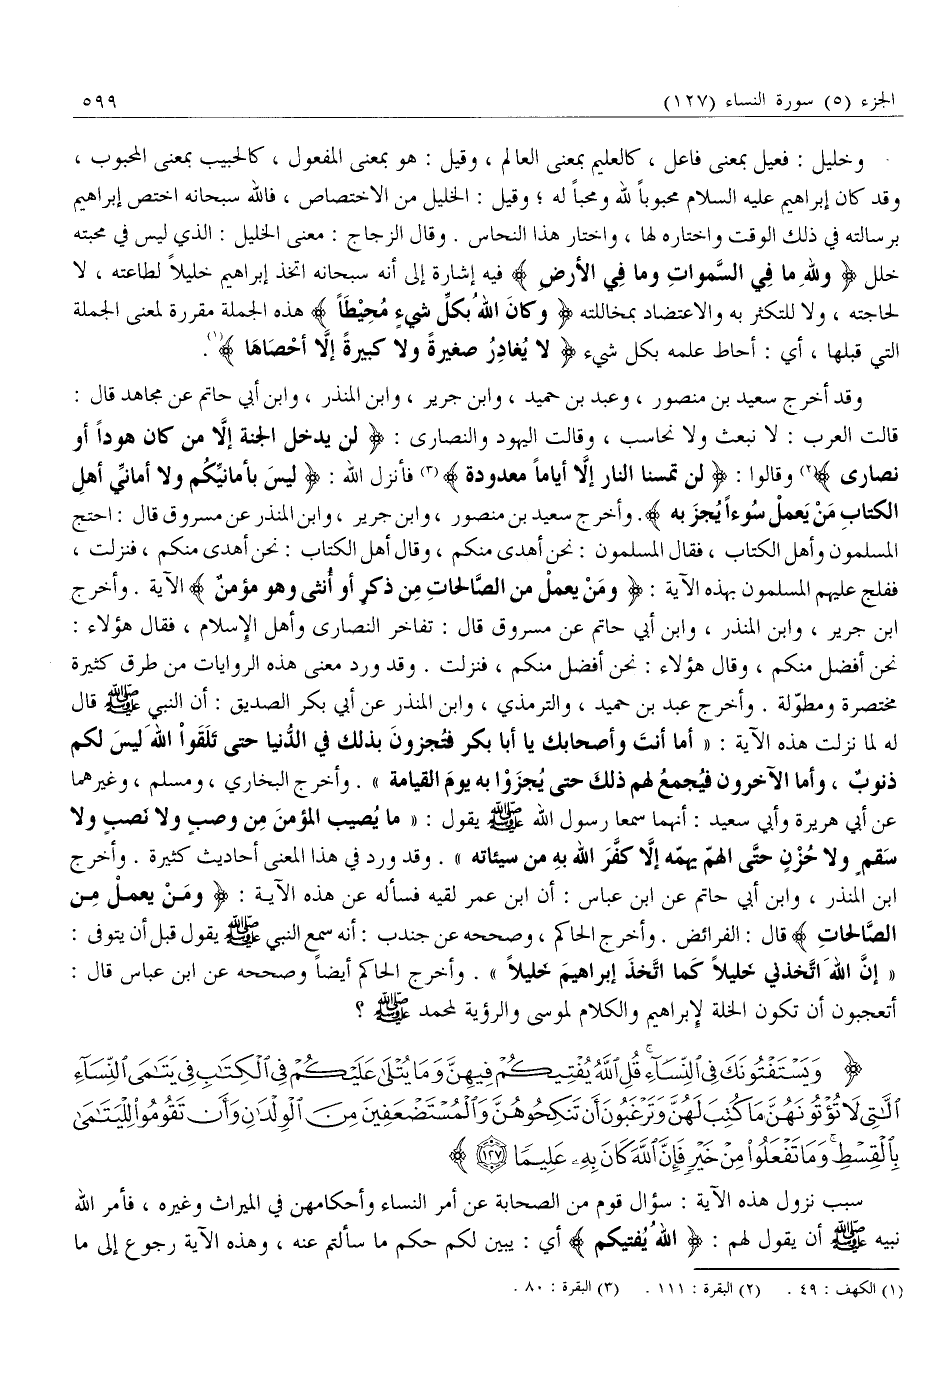 الجزء (٥) سورة النساء (١٢٧) ٥٩٩
وخليل : فعيل بمعنى فاعل ، كالعليم بمعنى العالم ، وقيل : هو بمعنى المفعول ، كالحبيب بمعنى المحبوب ،
وقد كان إبراهيم عليه السلام محبوباً لله ومحباً له ؛ وقيل : الخليل من الاختصاص ، فالله سبحانه اختص إبراهيم
برسالته في ذلك الوقت واختاره لها ، واختار هذا النحاس . وقال الزجاج : معنى الخليل : الذي ليس في محبته
خلل ﴿ ولله ما في السَّموات وما في الأرض ﴾ فيه إشارة إلى أنه سبحانه اتخذ إبراهيم خليلاً لطاعته ، لا
لحاجته ، ولا للتكثر به والاعتضاد بمخاللته ﴿ وكانَ اللهُ بكلِّ شيءٍ مُحِيْطَاً ﴾ هذه الجملة مقررة لمعنى الجملة
التي قبلها ، أي : أحاط علمه بكل شيء ﴿ لا يُغادِرُ صغيرةً ولا كبيرةً إلَّا أحْصَاهَا ﴾(١).
وقد أخرج سعيد بن منصور ، وعبد بن حميد ، وابن جرير ، وابن المنذر ، وابن أبي حاتم عن مجاهد قال :
قالت العرب : لا نبعث ولا نحاسب ، وقالت اليهود والنصارى : ﴿ لن يدخل الجنة إلَّا من كان هوداً أو
نصارى ﴾(٢) وقالوا : ﴿ لن تمسنا النار إلَّا أياماً معدودة ﴾(٣) فأنزل الله : ﴿ ليسَ بأمانيِّكُم ولا أمانيِّ أهلِ
الكتابِ مَنْ يَعملْ سُوءاً يُجزَ به ﴾. وأخرج سعيد بن منصور ، وابن جرير ، وابن المنذر عن مسروق قال : احتج
المسلمون وأهل الكتاب ، فقال المسلمون : نحن أهدى منكم ، وقال أهل الكتاب : نحن أهدى منكم ، فنزلت ،
ففلج عليهم المسلمون بهذه الآية : ﴿ ومَنْ يعملْ من الصَّالحاتِ مِن ذكرٍ أو أُنثى وهو مؤمنٌ ﴾ الآية . وأخرج
ابن جرير ، وابن المنذر ، وابن أبي حاتم عن مسروق قال : تفاخر النصارى وأهل الإسلام ، فقال هؤلاء :
نحن أفضل منكم ، وقال هؤلاء : نحن أفضل منكم ، فنزلت . وقد ورد معنى هذه الروايات من طرق كثيرة
مختصرة ومطوّلة . وأخرج عبد بن حميد ، والترمذي ، وابن المنذر عن أبي بكر الصديق : أن النبي ﷺ قال
له لما نزلت هذه الآية : « أما أنتَ وأصحابك يا أبا بكر فتُجزونَ بذلك في الدُّنيا حتى تَلَقَواْ اللهَ ليسَ لكم
ذنوبٌ ، وأما الآخرون فيُجمعُ لهم ذلكَ حتى يُجزَوْا به يومَ القيامة » . وأخرج البخاري ، ومسلم ، وغيرهما
عن أبي هريرة وأبي سعيد : أنهما سمعا رسول الله ﷺ يقول : « ما يُصيب المؤمنَ مِن وصبٍ ولا نَصبٍ ولا
سَقمٍ ولا حُزْنٍ حتَّى الهمّ يهمّه إلَّا كفَّرَ الله بهِ من سيئاته » . وقد ورد في هذا المعنى أحاديث كثيرة . وأخرج
ابن المنذر ، وابن أبي حاتم عن ابن عباس : أن ابن عمر لقيه فسأله عن هذه الآية : ﴿ ومَنْ يعملْ مِن
الصَّالحاتِ ﴾ قال : الفرائض . وأخرج الحاكم ، وصححه عن جندب : أنه سمع النبي ﷺ يقول قبل أن يتوفى :
« إنَّ اللهَ اتَّخذني خليلاً كما اتَّخذ إبراهيمَ خليلاً » . وأخرج الحاكم أيضاً وصححه عن ابن عباس قال :
أتعجبون أن تكون الخلة لإبراهيم والكلام لموسى والرؤية لمحمد ﷺ ؟
﴿ وَيَسْتَفْتُونَكَ فِي النِّسَاءِ قُلِ اللَّهُ يُفْتِيكُمْ فِيهِنَّ وَمَا يُتْلَى عَلَيْكُمْ فِي الْكِتَابِ فِي يَتَامَى النِّسَاءِ
اللَّاتِي لَا تُؤْتُونَهُنَّ مَا كُتِبَ لَهُنَّ وَتَرْغَبُونَ أَنْ تَنْكِحُوهُنَّ وَالْمُسْتَضْعَفِينَ مِنَ الْوِلْدَانِ وَأَنْ تَقُومُوا لِلْيَتَامَى
بِالْقِسْطِ وَمَا تَفْعَلُوا مِنْ خَيْرٍ فَإِنَّ اللَّهَ كَانَ بِهِ عَلِيمًا (١٢٧) ﴾
سبب نزول هذه الآية : سؤال قوم من الصحابة عن أمر النساء وأحكامهن في الميراث وغيره ، فأمر الله
نبيه ﷺ أن يقول لهم : ﴿ اللهُ يُفتيكم ﴾ أي : يبين لكم حكم ما سألتم عنه ، وهذه الآية رجوع إلى ما
(١) الكهف : ٤٩ . (٢) البقرة : ١١١ . (٣) البقرة : ٨٠ .